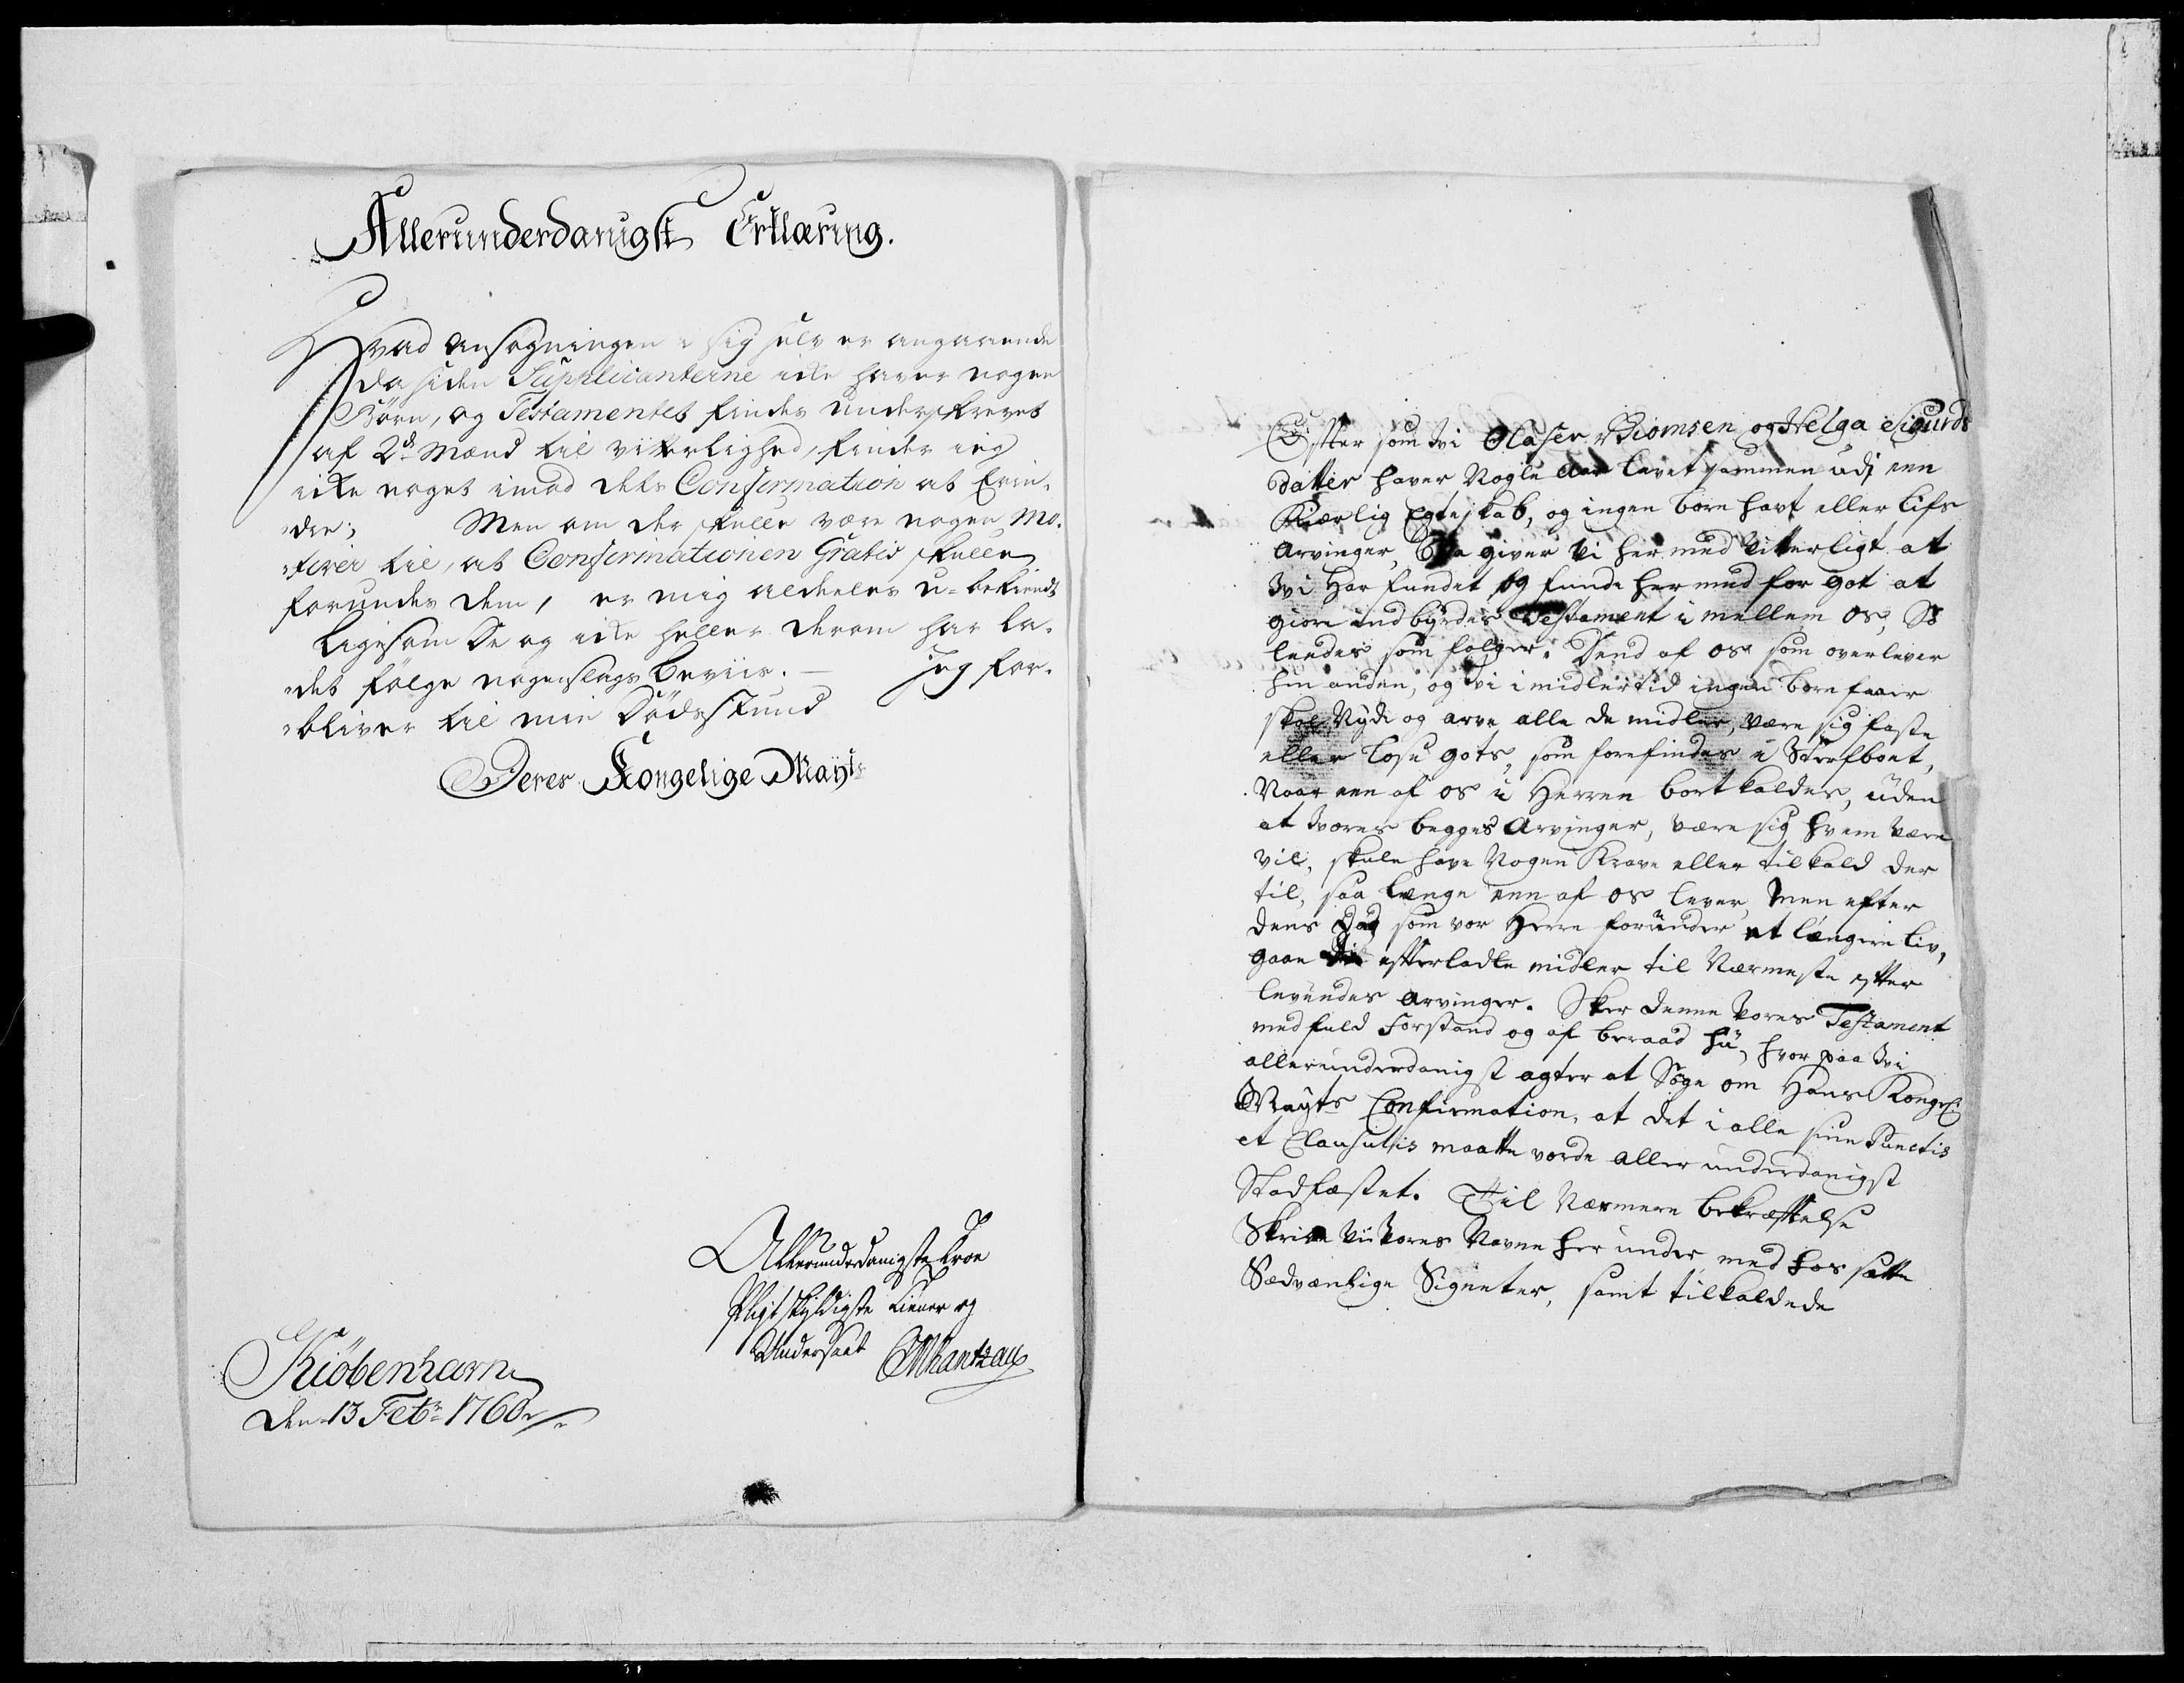 Allerunderdanigst Erklæring.
Hvad ansøgningen i sig selv er angaaende
da siden Supplicanterne icke haver nogen
Börn, og Testamentet findes underskrevet
af 2de Mænd til vitterlighed, finder ieg
icke noget imod dets Confirmation at Erin-
dre; Men om der skulle være nogen Mo-
tiver til, at Confirmationen Gratis skulle
forundes dem, er mig aldeeles u-bekiendt
ligesom De og icke heller derom har la-
det følge nogenslags beviis. — jeg for-
bliver til min Dödsstund
Deres Kongelige Mayts
Allerunderdanigste troe
Pligtskyldigste tiener og
Undersaat
Rantzau
Kiöbenhavn
den 13 Febr 1760
Efftersom Wi Olafer Biornsen og Helga Sigurds
datter haver Nogle Aar levet sammen udj een
Kierlig Egteskab, og ingen börn havt eller Lifs
Arvinger, Saa giver Vi hermed Vitterligt at
Wi Har fundet og finde hermed for got at
giöre indbyrdes Testament i mellem os, Saa
leedes som fölger. Dend af os som overlever
hin anden, og vi imidlertid ingen börn faaer
skal Nyde og arve alle de midler, være sig faste
eller löse gots, som forefindes i Sterfboet,
Naar een af os i Herren bortkaldes, uden
at Wores begges Arvinger, være sig hvem være
vil, skule have Nogen Krave eller tilkald der
til, saa længe een af os lever, Men efter
dens Död som vor Herre forunder et længere liv,
gaae de efterladte midler til Nærmeste efter
levendes arvinger. Skeer denne Vores Testament
med fuld Forstand og af beraad hu, hvor paa Wi
allerunderdanigst agter at Söge om Hans Kongel:
Mayts Confirmation, at det i alle sine Punctis
et Clausulis maatte vorde aller underdanigst
Stadfæstet. Til Nærmere bekræftelse
Skrive Vi Vores Navne her under, med hos satte
Sædvanlige Signeter, samt tilkaldede